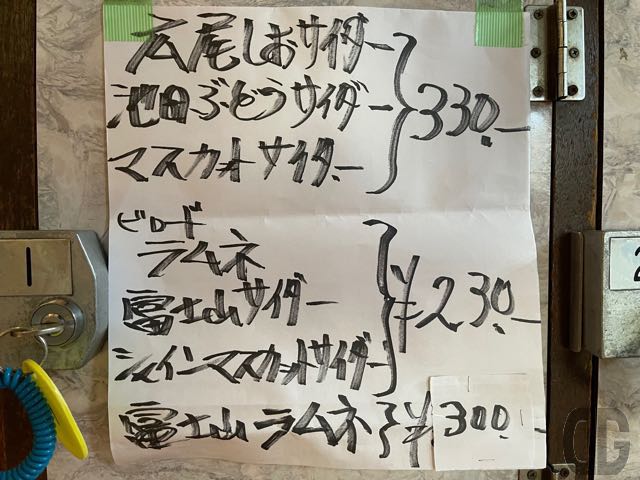 広尾しおサイダー
池田ぶどうサイダー
マスカットサイダー
330.-
ビロード
ラムネ
富士山サイダー
シャインマスカットサイダー
¥230.-
富士山ラムネ
¥300.-
1
2